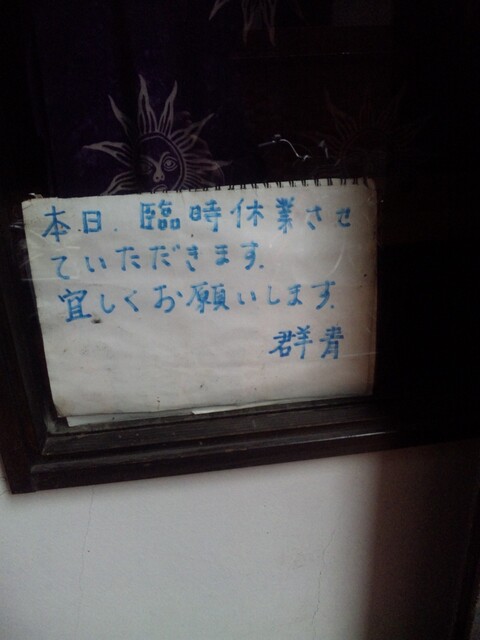 本日、臨時休業させ
ていただきます。
宜しくお願いします。
群青